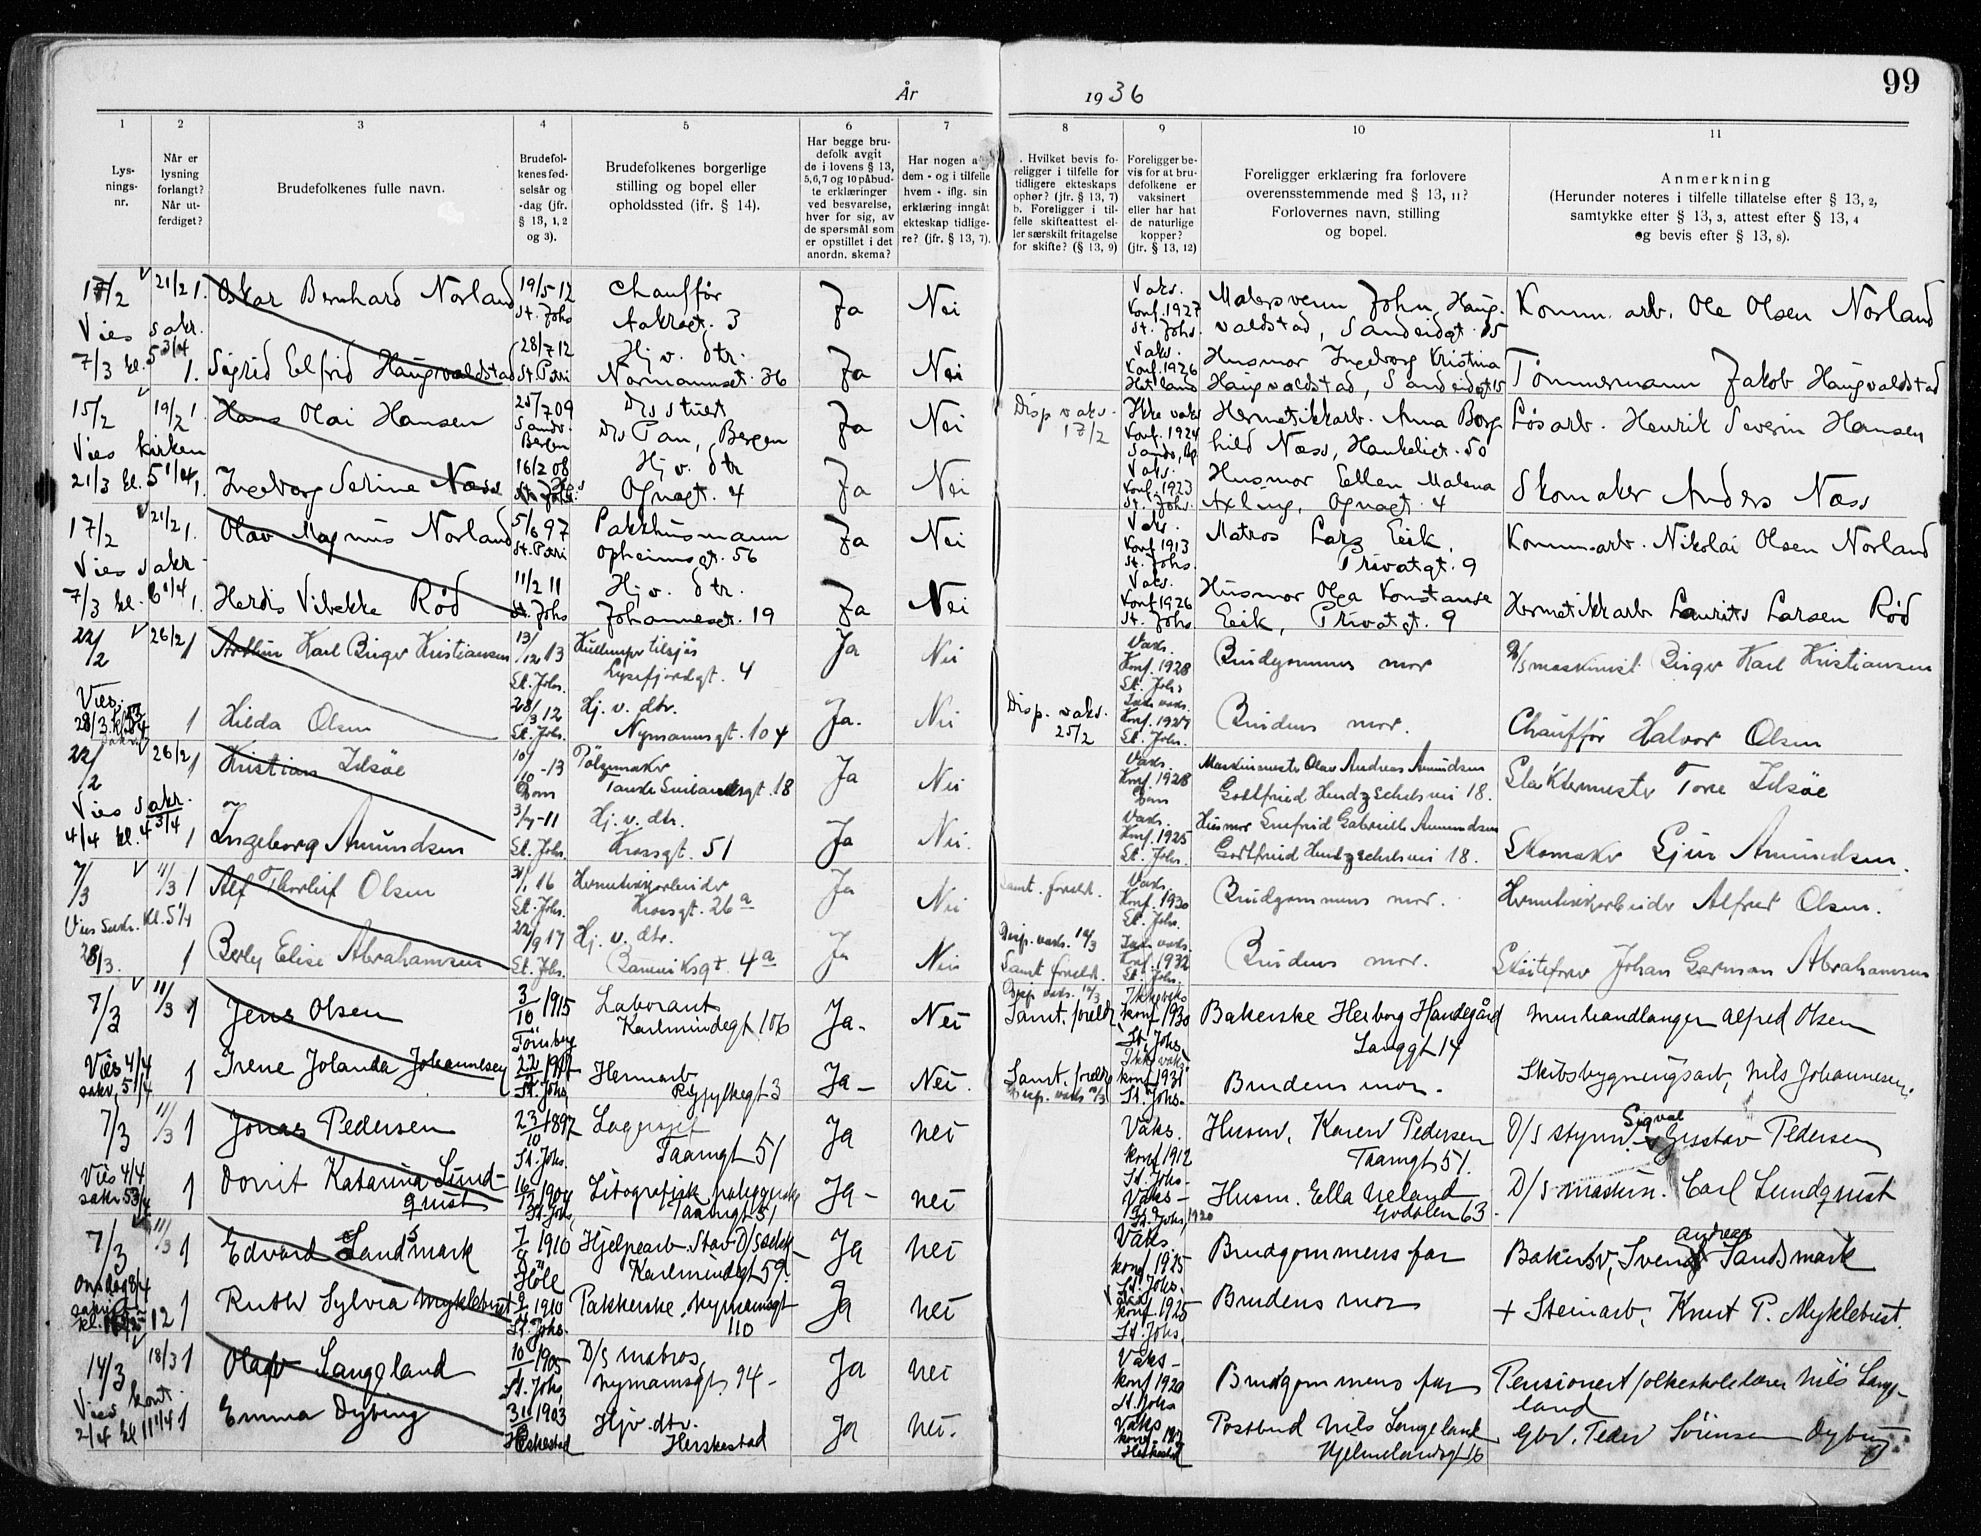 99
År 1936
1 2 3 4 5 6 7 8 9 10 11
Lys-
nings-
nr.
Når er
lysning
forlangt?
Når ut-
ferdiget?
Brudefolkenes fulle navn.
Brudefol-
kenes fød-
selsår og
-dag (jfr.
§ 13, 1, 2
og 3).
Brudefolkenes borgerlige
stilling og bopel eller
opholdssted (ifr. § 14).
Har begge bru-
defolk avgit
de i lovens § 13,
5,6,7 og 10 påbud-
te erklæringer
ved besvarelse,
hver for sig, av
de spørsmål som
er opstillet i det
anordn. skema?
Har nogen a
dem - og i tilfelle
hvem - iflg. sin
erklæring inngåt
ekteskap tidlige-
re? (jfr. § 13, 7).
. Hvilket bevis fo-
religger i tilfelle for
tidligere ekteskaps
ophør? (jfr. § 13, 7)
b. Foreligger i til-
felle skifteattest el-
ler særskilt fritagelse
for skifte? (§ 13, 9)
Foreligger be-
vis for at bru-
defolkene er
vaksinert
eller har hat
de naturlige
kopper?
(jfr. § 13, 12)
Foreligger erklæring fra forlovere
overensstemmende med § 13, 11?
Forlovernes navn, stilling
og bopel.
Anmerkning
(Herunder noteres i tilfelle tillatelse efter § 13, 2,
samtykke efter § 13, 3, attest efter § 13, 4
og bevis efter § 13, 8).
17/2 21/2 1. Oskar Bernhard Norland 19/5-12 St. Johs Chauffør Aakragt. 3 Ja Nei Vaks. Konf. 1927 St. Johs. Malersvenn John Haug-
valdstad, Sandeidgt. 15 Komm. arb. Ole Olsen Norland
Vies sakr.
7/3 kl. 5 3/4 1. Sigrid Elfrid Haugvaldstad 28/7 12 St. Petri Hj. v. dtr. Normannsgt. 36 Ja Nei Vaks. Konf. 1926 Hetland Husmor Ingeborg Kristina
Haugvaldstad, Sandeidgt 15 Tømmermann Jakob Haugvaldstad
15/2 19/2 1. Hans Olai Hansen 25/7 09 Sandv. Bergen D/s stuert D/s Pan, Bergen Ja Nei Disp. vaks. 17/2 Ikke vaks Konf. 1924 Hermetikkarb. Anna Borg-
hild Næss, Haukeligt. 50 Løsarb. Henrik Severin Hansen
Vies kirken
21/3 kl. 5 1/4 1. Ingeborg Serine Næss 16/2 08 St. Johs. Hj. v. dtr Ognagt. 4 Ja Nei Vaks. Konf. 1923 St. Johs. Husmor Ellen Malena
Axling, Ognagt. 4 Skomaker Anders Næss
17/2 21/2 1. Olav Magnus Norland 5/6 97 St. Petri Pakkhusmann Opheimsgt. 56 Ja Nei Vaks. Konf 1913 St. Johs. Matros Lars Eeik,
Privatgt. 9 Komm.arb. Nikolai Olsen Norland
Vies sakr.
7/3 kl. 6 1/4 1. Herdis Vibekke Rød 11/2 11 St. Johs Hj. v. dtr. Johannesgt. 19 Ja Nei Vaks. Konf 1926 St. Johs Husmor Olga Konstanse
Eeik, Privatgt. 9 Hermetikkarb Laurits Larsen Rød
22/2 26/2 1 Karl Birger Kristiansen 13/12 13 St. Johs. tilsjøs Lysefjordgt. 4 Ja Nei Vaks. Konf. 1928 St. Johs Brudgommens mor D/s maskinist. Birger Karl Kristiansen
Vies.
28/3 1 Hilda Olsen 28/3 12 St. Johs. Hj. v. dtr. Nymannsgt. 104 Ja. Nei Disp. vaks. 25/2 Ikke vaks. Konf. 1927 St. Johs. Brudens mor. Chauffør Halvor Olsen
22/2 26/2 1 Kristian Idsöe 10/10-13 Dom Pølsemaker 18 Ja Nei Vaks. Konf. 1928 Dom Maskinmester Olav Andreas Amundsen
18. Slaktermester Tore Idsöe
Vies sakr.
4/4 kl. 4 3/4 1 Ingeborg Amundsen 3/4-11 St. Johs. Hj. v. dtr. Krossgt. 51 Ja Nei. Vaks. Konf. 1925 St. Johs. Husmor Gabrielle Amundsen
18. Skomaker Amundsen.
7/3 11/3 1 Alf Thorleif Olsen 16 St. Johs. Hermetikkarbeider Krossgt. 26 a Ja Nei Samt. foreld. Vaks. Konf. 1930 St. Johs. Brudgommens mor. Hermetikkarbeider Alfred Olsen.
Vies Sakr. Kl. 5 1/4
28/3. 1 Berly Elise Abrahamsen 22/9 17 St. Johs. Hj. v. dtr. 4 a Ja Nei Disp. vaks. 10/3 Samt foreld. Ikke vaks. Konf. 1932 St. Johs. Brudens mor. Johan German Abrahamsen
7/3 11/3 1 Jens Olsen 3/10 1915 Laborant Karlmindegt 106 Ja- Nei Disp. vaks. 10/3 Samt. foreldr. Ikke vaks konf 1930 St. Johs. Bakerske Herborg Handegård
Langgt 14 Murhandlanger Alfred Olsen
Vies 4/4
sakr. 5 1/4 1 Irene Jolanda Johannesen St. Johs Hermarb Ryfylkegt 3 Ja- Nei. Samt. foreldr Disp. vaks 10/3 Ikke vaks. konf 1931 St. Johs. Brudens mor. Skibsbygningsarb, Nils Johannesen.
7/3 11/3 1 Jonas Pedersen 23/10 1897 St. Johs. Lagersjef Taarngt 51 Ja nei Vaks. konf 1912 St. Johs. Husm. Karen Pedersen
Taarngt 51. D/s styrm. Sigval Gustav Pedersen
Vies 4/4
sakr 5 3/4 1 Dorrit Katarina Lund-
qvist 1904 St. Johs, Litografisk Taarngt 51 Ja- nei Vaks- St. Johs, 1920 Husm. Ella Ueland
Godalen 63. D/s maskin. Carl Lundqvist
7/3 11/3 1 Edvard Sandsmark 1910 Höle Hjelpearb. Stav. Karlmindegt 59. Ja nei Vaks konf 1925 St. Johs. Brudgommens far Bakersv, Svend Andreas Sandsmark
Onsdag 8/4
12 1 Ruth Sylvia Myklebust 1910 St. Johs. Pakkerske, Nymansgt 110 Ja nei konf 1925 St. Johs, Brudens mor + Steinarb, Knut P. Myklebust.
14/3 18/3 1 Olaf Langeland 1905 St. Johs. D/s matros, Nymansgt, 94- Ja nei Vaks- konf 1920 St. Johs Brudgommens far Pensionert folkeskolelærer Nils Lange-
land
Vies kont.
2/4 kl 11 1/4 1 Emma Dybing 1903 Heskestad Hjv. dtr. Heskestad Ja nei. Vaks Heskestad Postbud Nils Langeland
Hjelmelandsgt 16 Gbr. Peder Sörensen Dybing